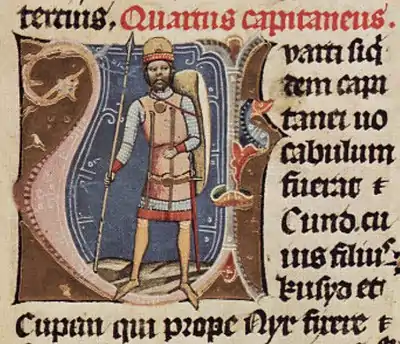 tercius. Quartus capitaneus.
uarti siq̇
dem capi
tanei uo
cabulum
fuerat ⁊
Cund. cu
ius filiuˢ
kusyd et
Cupan qui prope Nyr fuere ⁊